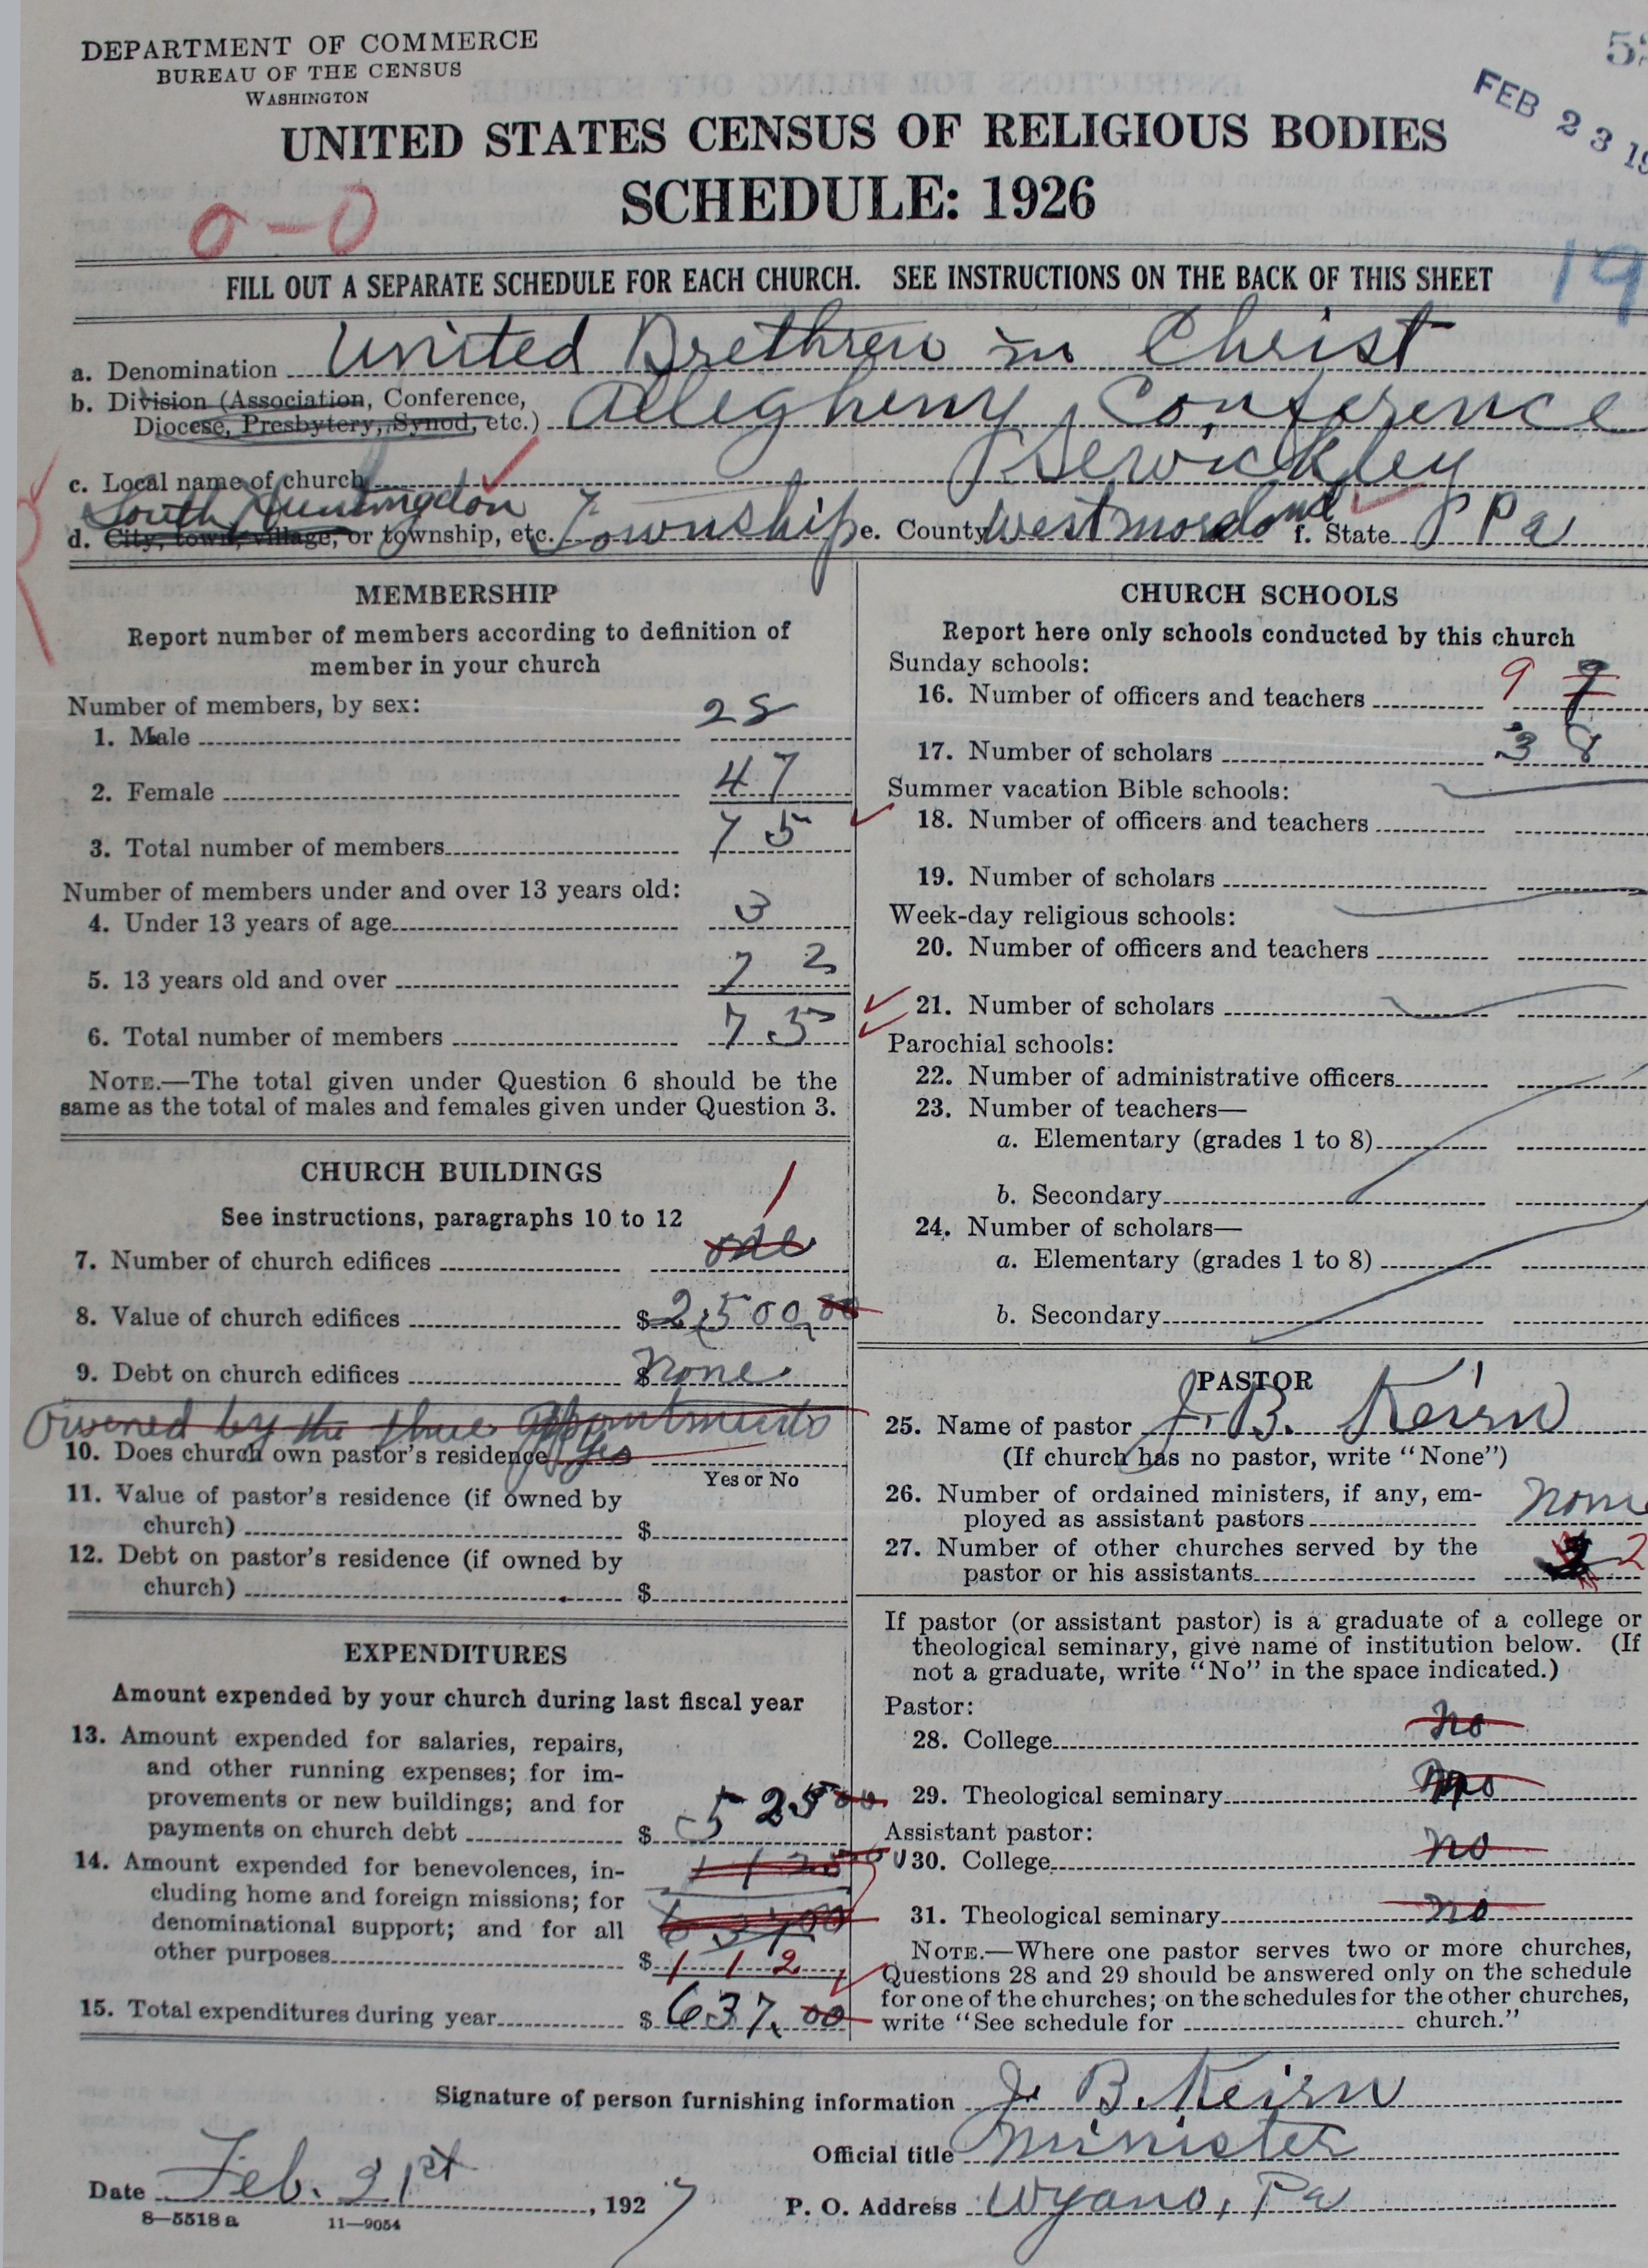 DEPARTMENT OF COMMERCE
BUREAU OF THE CENSUS
WASHINGTON
FEB 23 19
UNITED STATES CENSUS OF RELIGIOUS BODIES
SCHEDULE: 1926
0-0
19
FILL OUT A SEPARATE SCHEDULE FOR EACH CHURCH. SEE INSTRUCTIONS ON THE BACK OF THIS SHEET
a. Denomination United Brethren in Christ
b. Division (Association, Conference,
Diocese, Presbytery, Synod, etc.) Allegheny Conference
c. Local name of church Sewickley
South Huntingdon
d. City, town, village, or township, etc. Township e. County Westmoreland f. State Pa
MEMBERSHIP
Report number of members according to definition of
member in your church
Number of members, by sex:
1. Male 28
2. Female 47
3. Total number of members 75
Number of members under and over 13 years old:
4. Under 13 years of age 3
5. 13 years old and over 72
6. Total number of members 75
NOTE.—The total given under Question 6 should be the
same as the total of males and females given under Question 3.
CHURCH BUILDINGS
See instructions, paragraphs 10 to 12
1
7. Number of church edifices one
8. Value of church edifices $2,500,00
9. Debt on church edifices $ none
Owened by the three Appointments
10. Does church own pastor's residence yes
Yes or No
11. Value of pastor's residence (if owned by
church) $
12. Debt on pastor's residence (if owned by
church) $
EXPENDITURES
Amount expended by your church during last fiscal year
13. Amount expended for salaries, repairs,
and other running expenses; for im-
provements or new buildings; and for
payments on church debt $ 525 00
14. Amount expended for benevolences, in-
cluding home and foreign missions; for
denominational support; and for all
other purposes $ 112
15. Total expenditures during year $ 637.00
CHURCH SCHOOLS
Report here only schools conducted by this church
Sunday schools:
16. Number of officers and teachers 9 9
17. Number of scholars 38
Summer vacation Bible schools:
18. Number of officers and teachers
19. Number of scholars
Week-day religious schools:
20. Number of officers and teachers
21. Number of scholars
Parochial schools:
22. Number of administrative officers
23. Number of teachers—
a. Elementary (grades 1 to 8)
b. Secondary
24. Number of scholars—
a. Elementary (grades 1 to 8)
b. Secondary
PASTOR
25. Name of pastor J. B. Keirn
(If church has no pastor, write "None")
26. Number of ordained ministers, if any, em-
ployed as assistant pastors none
27. Number of other churches served by the
pastor or his assistants 2
If pastor (or assistant pastor) is a graduate of a college or
theological seminary, give name of institution below. (If
not a graduate, write "No" in the space indicated.)
Pastor:
28. College no
29. Theological seminary no
Assistant pastor:
30. College no
31. Theological seminary no
NOTE.—Where one pastor serves two or more churches,
Questions 28 and 29 should be answered only on the schedule
for one of the churches; on the schedules for the other churches,
write "See schedule for church."
Signature of person furnishing information J. B. Keirn
Official title Minister
Date Feb. 21st, 1927
P. O. Address Wyano, Pa
8—5518 a 11—9054